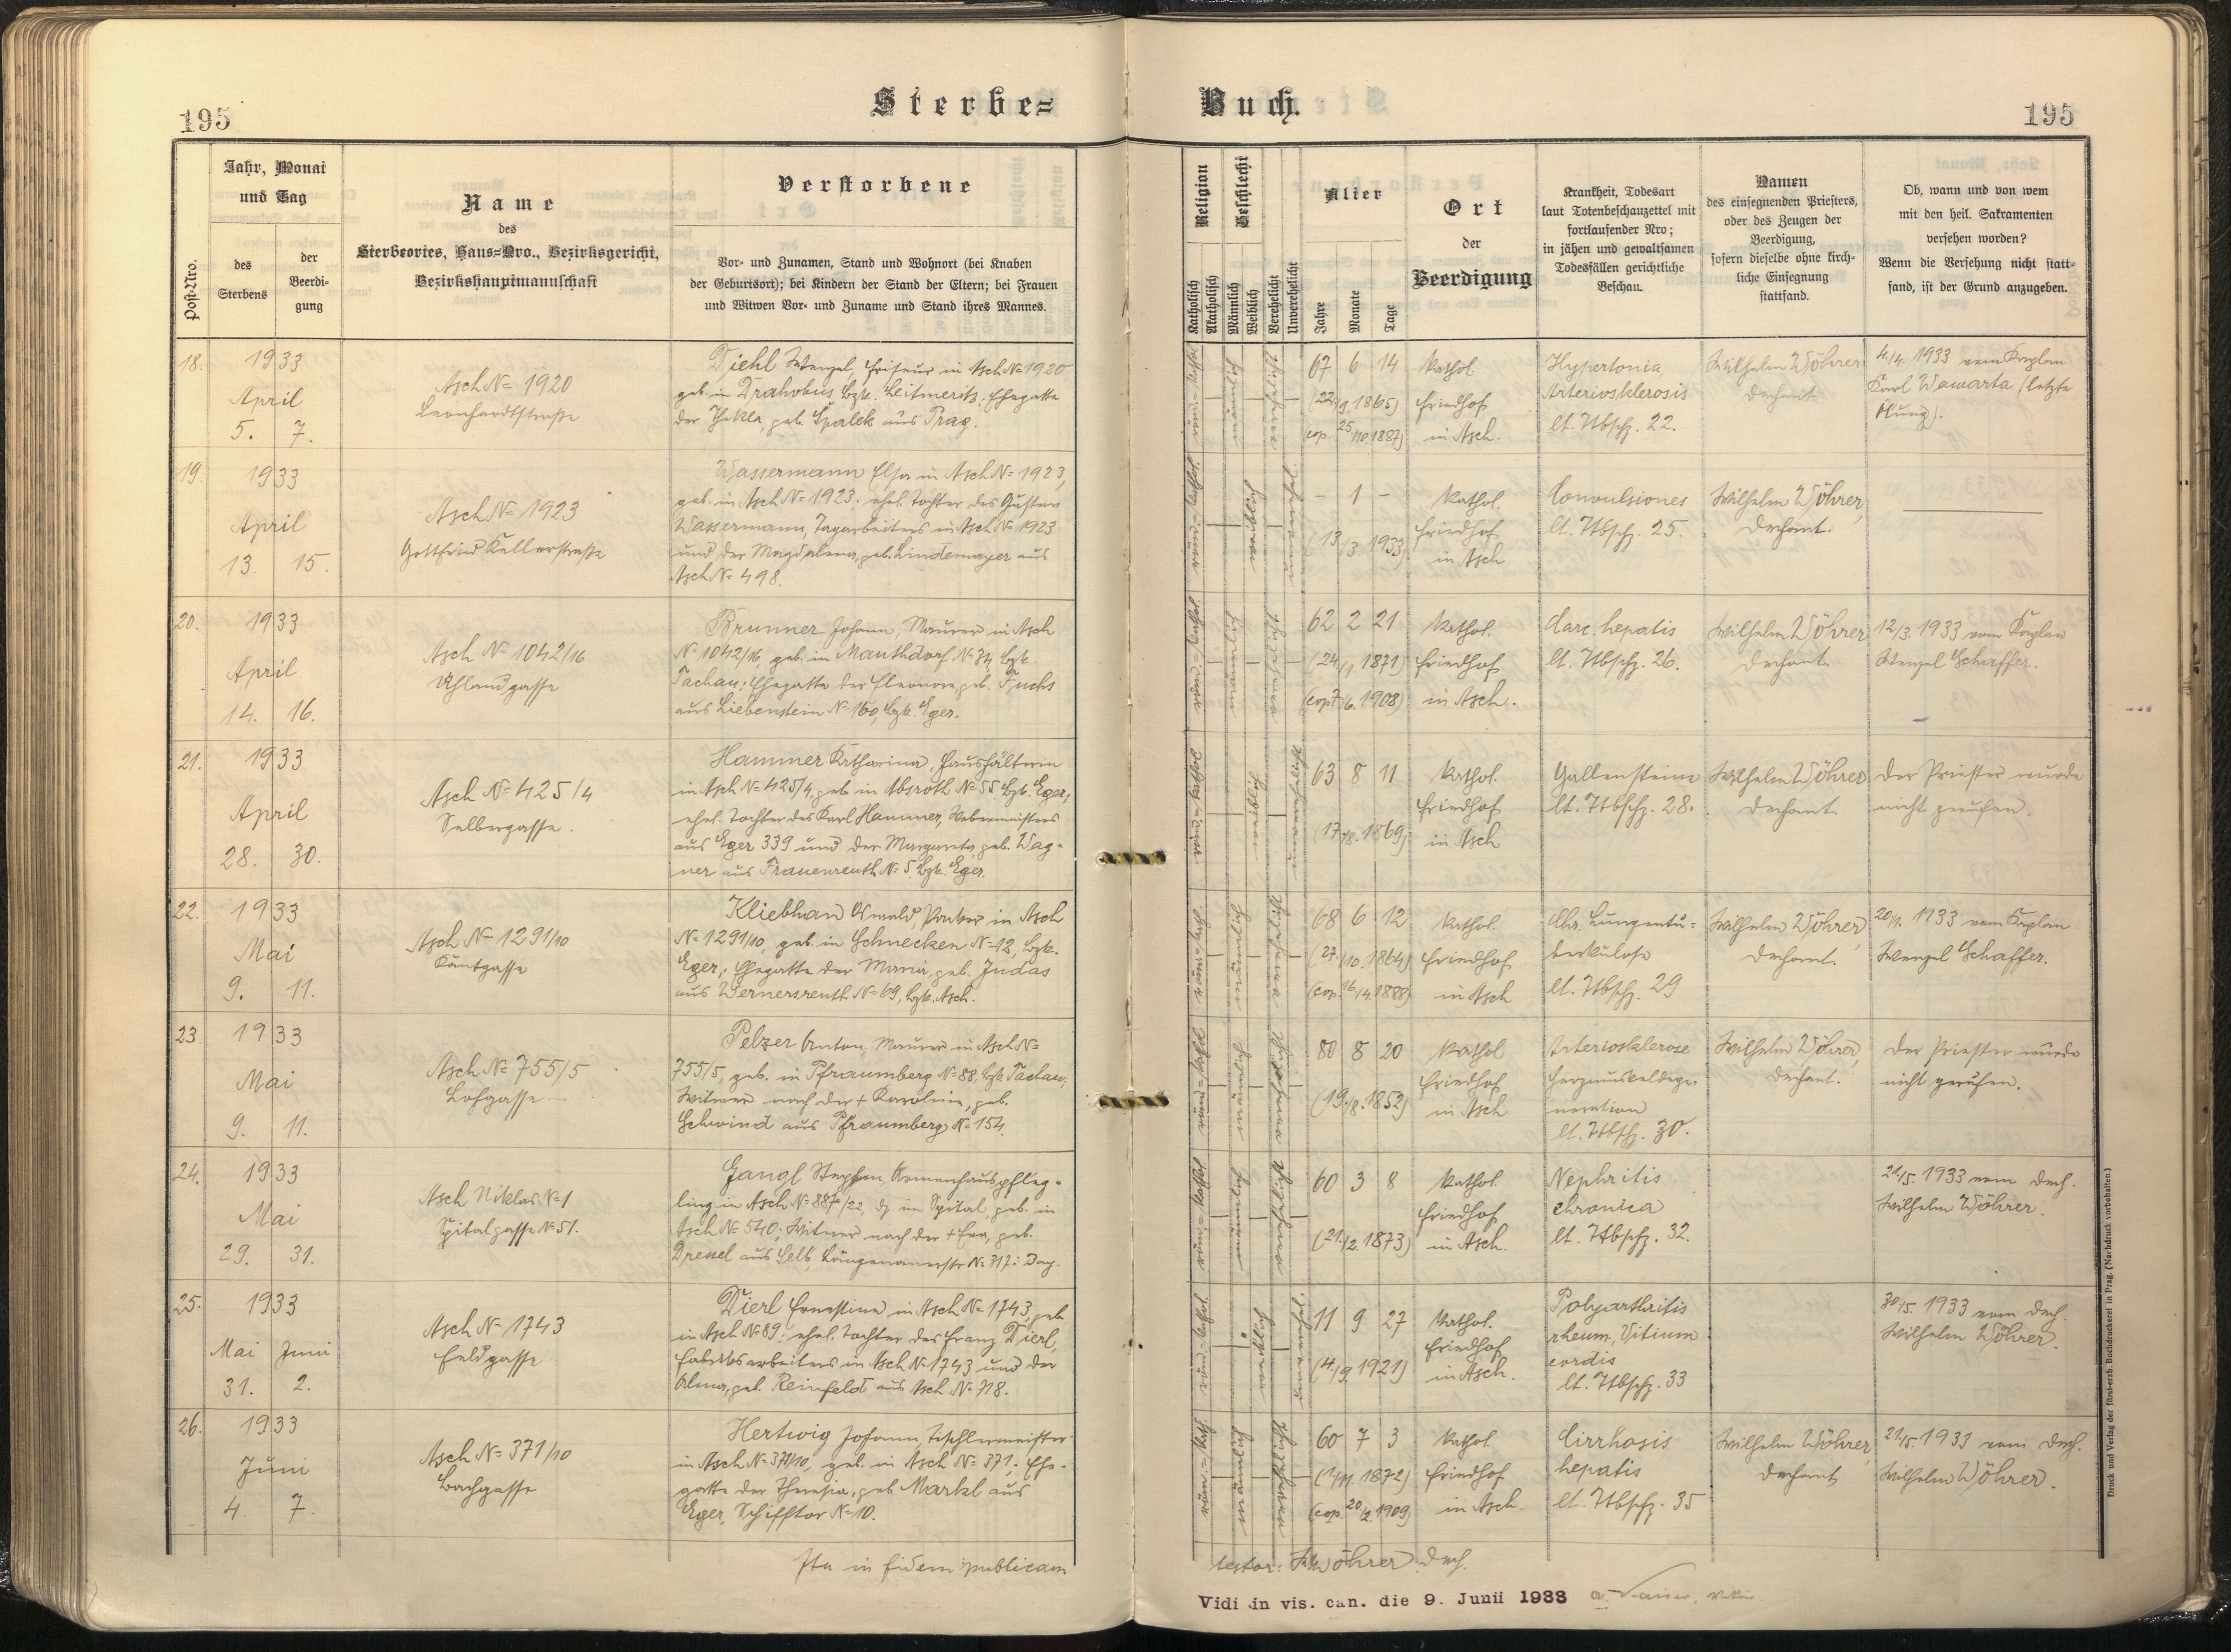 195
Sterbe=
Buch.
195
Post-Nro.
Jahr, Monat
und Tag
des
Sterbens
der
Beerdi-
gung
Name
des
Sterbeortes, Haus=Nro., Bezirksgericht,
Bezirkshauptmannschaft
Verstorbene
Vor- und Zunamen, Stand und Wohnort (bei Knaben
der Geburtsort); bei Kindern der Stand der Eltern; bei Frauen
und Witwen Vor- und Zuname und Stand ihres Mannes.
Religion
Katholisch
Akatholisch
Geschlecht
Männlich
Weiblich
Verehelicht
Unverehelicht
Alter
Jahre
Monate
Tage
Ort
der
Beerdigung
Krankheit, Todesart
laut Totenbeschauzettel mit
fortlaufender Nro;
in jähen und gewaltsamen
Todesfällen gerichtliche
Beschau.
Namen
des einsegnenden Priesters,
oder des Zeugen der
Beerdigung,
sofern dieselbe ohne kirch-
liche Einsegnung
stattfand.
Ob, wann und von wem
mit den heil. Sakramenten
versehen worden?
Wenn die Versehung nicht statt-
fand, ist der Grund anzugeben.
18. 1933
April
5. 7.
Asch № 1920
Leonhardtstraße
Diehl Wenzel, Friseur in Asch № 1920
geb. in Drahobus Bzk. Leitmeritz. Ehegatte
der Thekla, geb. Spalek aus Prag.
röm.=kathol. männlich verehelicht
67 6 14
(22./9. 1865)
cop. 25/10. 1887)
Kathol.
Friedhof
in Asch.
Hypertonia
Arteriosklerosis
lt. Ttbschz. 22.
Wilhelm Wöhrer
Dechant
4./4. 1933 vom Kaplan
Karl Wamarta (letzte
Ölung).
19. 1933
April
13. 15.
Asch № 1923
Gottfried Kellerstraße
Wassermann Elsa in Asch № 1923,
geb. in Asch № 1923; ehel. Tochter des Gustav
Wassermann, Tagarbeiters in Asch № 1923
und der Magdalena, geb. Lindemayer aus
Asch № 498.
röm.=kathol. weiblich
- 1 -
(13./3. 1933)
Kathol.
Friedhof
in Asch
Convulsiones
lt. Ttbschz. 25.
Wilhelm Wöhrer,
Dechant.
20. 1933
April
14. 16.
Asch № 1042/16
Uhlandgasse
Brunner Johann, Maurer in Asch
№ 1042/16, geb. in Mauthdorf № 34, Bzk.
Tachau; Ehegatte der Eleonore, geb. Fuchs
aus Liebenstein № 160, Bzk. Eger.
röm.=kathol. männlich
62 2 21
(24./1. 1871)
(cop. 7./6. 1908)
Kathol.
Friedhof
in Asch.
Carc. hepatis
lt. Ttbschz. 26.
Wilhelm Wöhrer
Dechant.
12/3. 1933 vom Kaplan
Wenzel Schaffer.
21. 1933
April
28. 30.
Asch № 425/4
Selbergasse.
Hammer Katharina, Haushälterin
in Asch № 425/4, geb. in Absroth № 55 Bzk. Eger,
ehel. Tochter des Karl Hammer, Webermeisters
aus Eger 339 und der Margareta, geb. Wag=
ner aus Frauenreuth № 5. Bzk. Eger.
röm.=kathol. weiblich
63 8 11
(17./8. 1869)
Kathol.
Friedhof
in Asch
Gallensteine
lt. Ttbschz. 28.
Wilhelm Wöhrer
Dechant.
Der Priester wurde
nicht gerufen.
22. 1933
Mai
9. 11.
Asch № 1291/10
Kantgasse
Kliebhan Oswald, Weber in Asch
№ 1291/10, geb. in Schnecken № 12, Bzk.
Eger, Ehegatte der Maria, geb. Judas
aus Wernersreuth № 69, Bzk. Asch.
röm.=kath. männlich
68 6 12
(27./10. 1864)
(cop. 16/4. 1888)
Kathol.
Friedhof
in Asch
Chr. Lungentu=
berkulose
lt. Ttbschz. 29
Wilhelm Wöhrer,
Dechant.
20/1. 1933 vom Kaplan
Wenzel Schaffer.
23. 1933
Mai
9. 11.
Asch № 755/5
Lohgasse
Pelzer Anton, Maurer in Asch №
755/5, geb. in Pfraumberg № 88, Bzk. Tachau,
Witwer nach der + Karoline, geb.
Schwind aus Pfraumberg № 154.
röm.=kathol. männlich
80 8 20
(19./8. 1852)
Kathol.
Friedhof
in Asch
Arteriosklerose
Herzmuskeldege=
neration
lt. Ttbschz. 30.
Wilhelm Wöhrer,
Dechant.
Der Priester wurde
nicht gerufen.
24. 1933
Mai
29. 31.
Asch Niklas № 1
Spitalgasse № 51.
Jangl Stephan, Armenhauspfleg=
ling in Asch № 887/22, dz. im Spital, geb. in
Asch № 540; Witwer nach der + Eva, geb.
Dressel aus Selb, Längenauerstr. № 317: Bay.
röm.=kathol. männlich
60 3 8
(21./2. 1873)
Kathol.
Friedhof
in Asch.
Nephritis
chronica
lt. Ttbschz. 32.
21./5. 1933 vom Dech.
Wilhelm Wöhrer.
25. 1933
Mai Juni
31. 2.
Asch № 1743
Feldgasse
Dierl Ernestine in Asch № 1743, geb.
in Asch № 89; ehel. Tochter des Franz Dierl,
Fabriksarbeiters in Asch № 1743 und der
Alma, geb. Reinfeldt aus Asch № 718.
röm.=kathol. weiblich
11 9 27
(4./9. 1921)
Kathol.
Friedhof
in Asch.
Polyarthritis
rheum, Vitium
cordis
lt. Ttbschz. 33
30/5. 1933 vom Dech.
Wilhelm Wöhrer.
26. 1933
Juni
4. 7.
Asch № 371/10
Bachgasse
Hertwig Johann, Tischlermeister
in Asch № 371/10, geb. in Asch № 371; Ehe-
gatte der Theresia, geb. Markl aus
Eger, Schifftor № 10.
röm.=kath. männlich
60 7 3
(1./11. 1872)
(cop. 20/2. 1909)
Kathol.
Friedhof
in Asch.
Cirrhosis
hepatis
lt. Ttbschz. 35
Wilhelm Wöhrer,
Dechant
21./5. 1933 vom Dech.
Wilhelm Wöhrer.
Ita in fidem publicam
testor: Wöhrer Dech.
Vidi in vis. can. die 9. Junii 1933
Druck und Verlag der fürst-erzb. Buchdruckerei in Prag. (Nachdruck vorbehalten.)